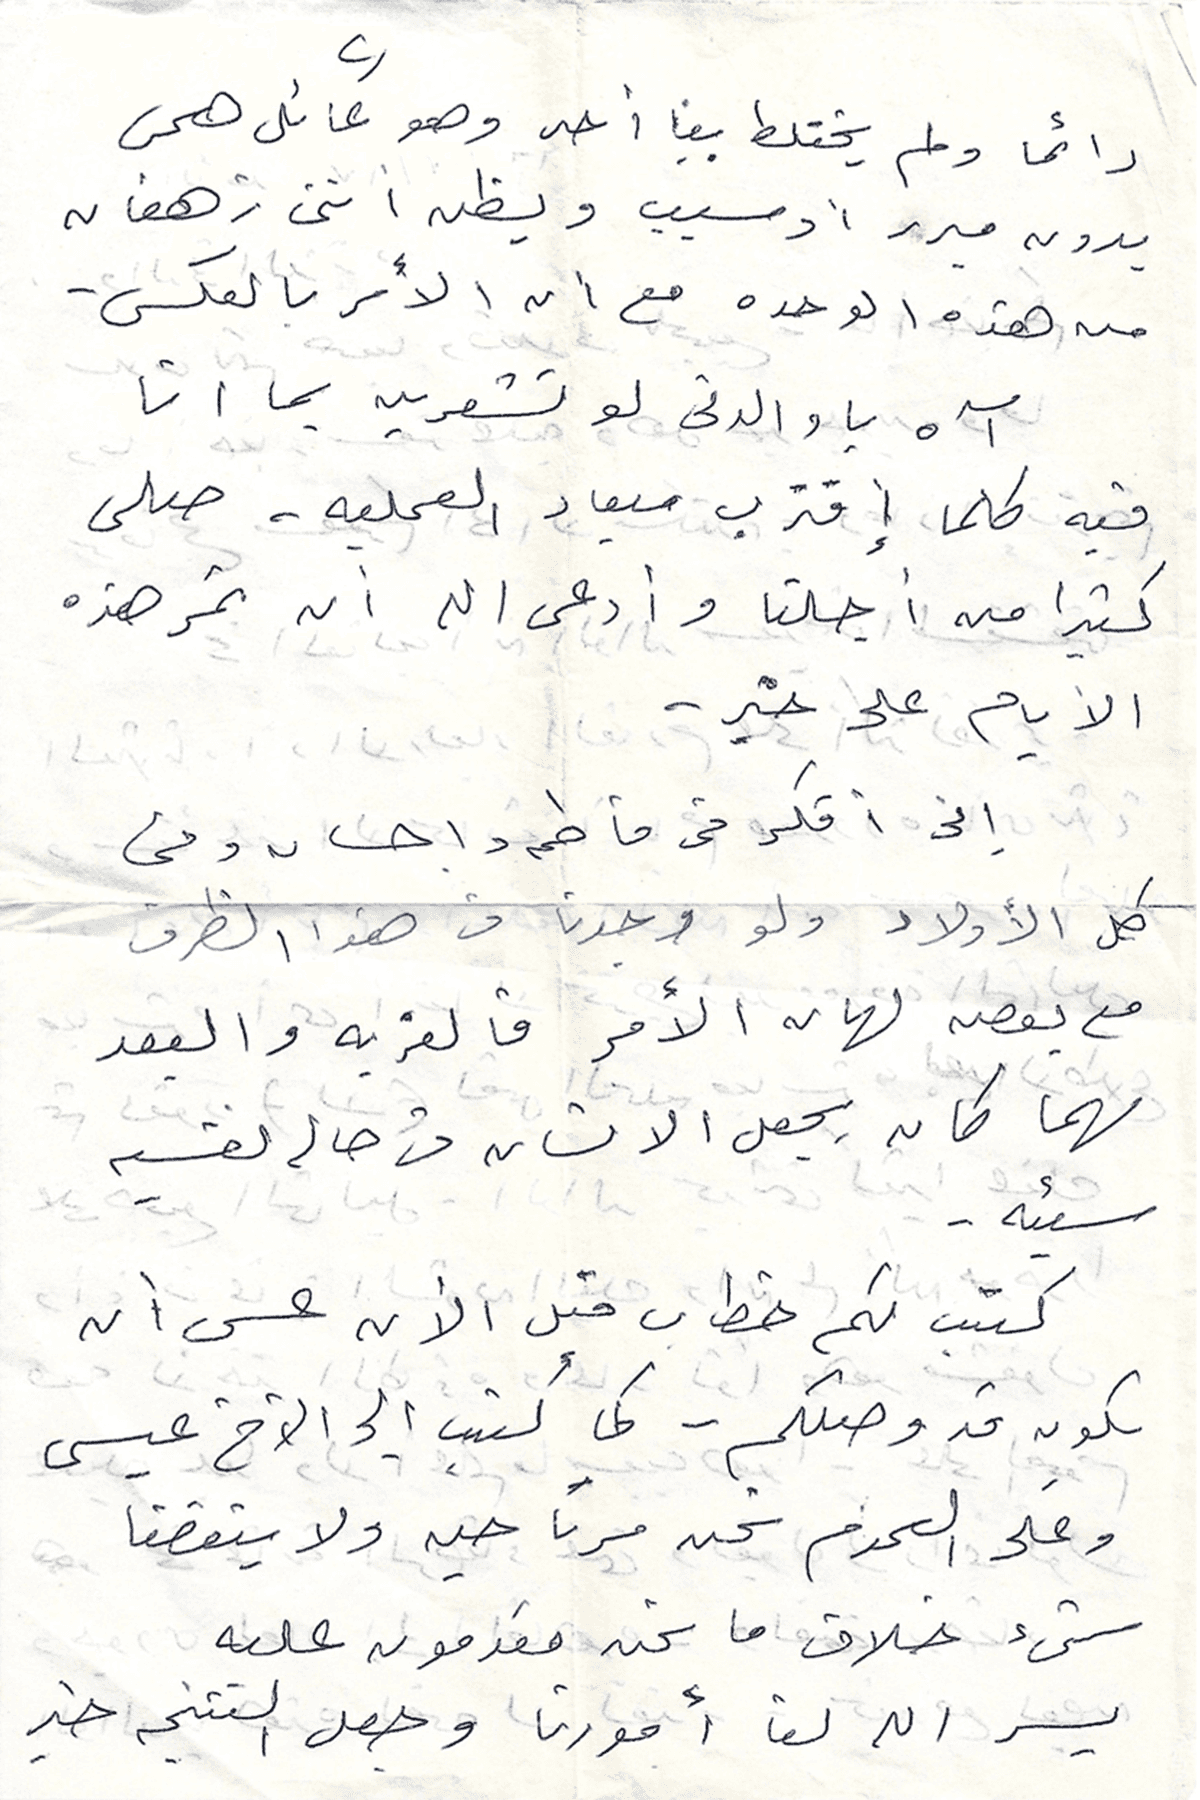 ٢
دائما ولم يختلط بنا أحد وهو عائل همى
بدون مبرر او سبب ويظن اننى زهقان
من هذه الوحده مع ان الأمر بالعكس -
آه يا والدتى لو تشعرين بما انا
فيه كلما إقترب ميعاد العمليه - صلى
كثيرا من أجلنا وأدعى الله أن تمر هذه
الأيام على خير -
إنى أفكر فى فاطمه واحسان وفى
كل الأولاد ولو وجدنا فى هذا الظرف
مع بعض لهان الأمر فالغربه والبعد
مهما كان يجعل الانسان فى حاله نفسيه
سيئه -
كتبت لكم خطاب قبل الأن عسى أن
يكون قد وصلكم - كما كتبت إلى الأخ عيسى
وعلى العموم نحن مرتاحين ولا ينقصنا
شىء خلاف ما نحن مقدمون عليه
يسر الله لنا أمورنا وجعل النتيجه خير